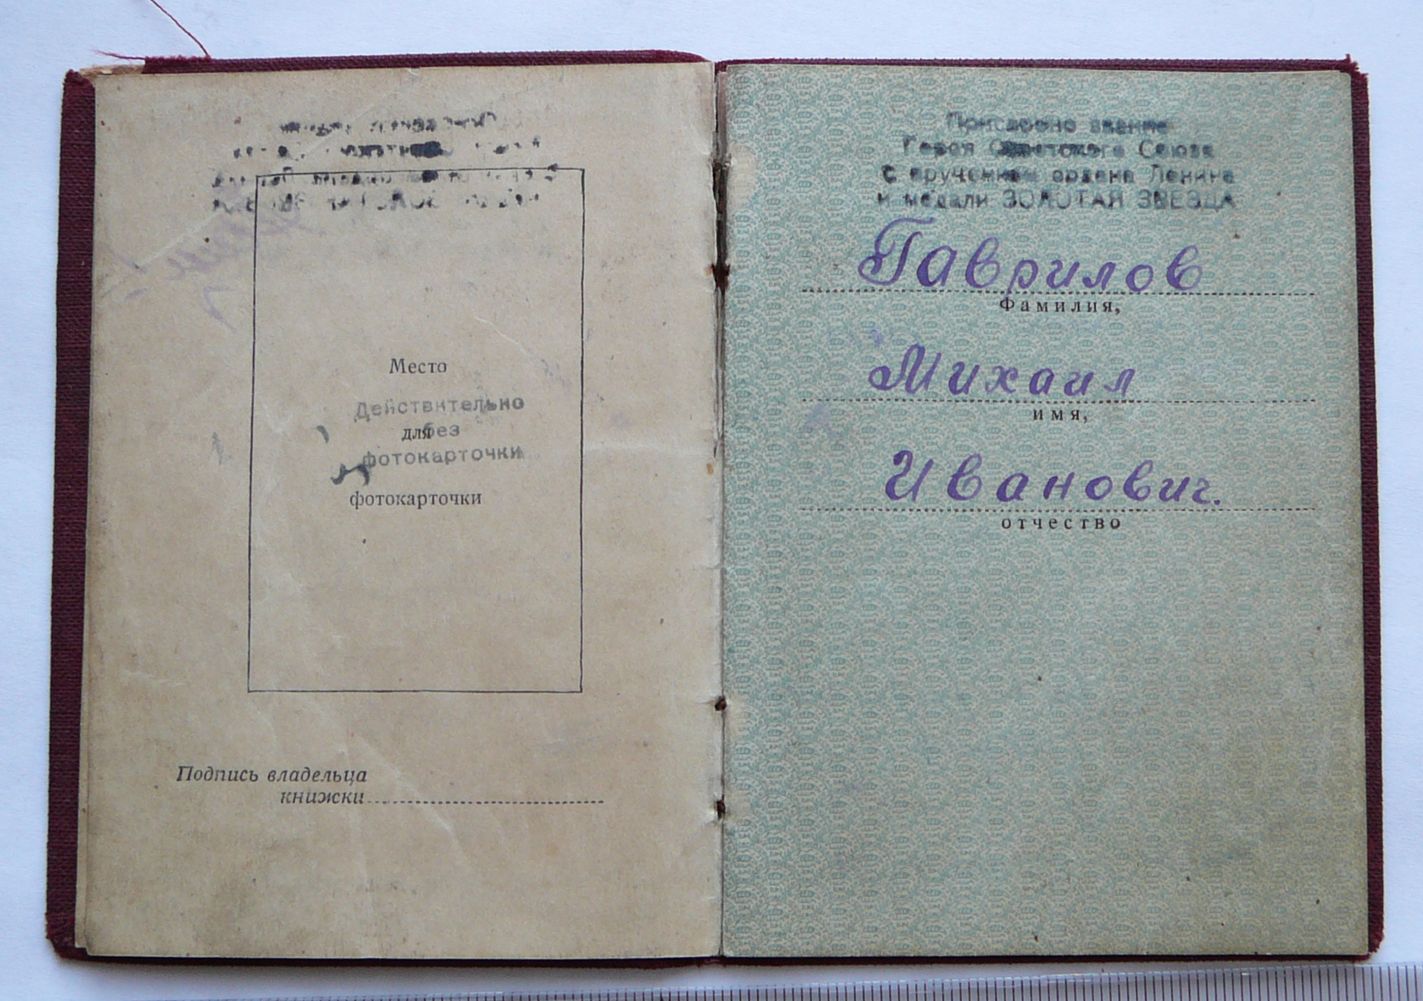 Место
Действительно
для без
фотокарточки
фотокарточки
Подпись владельца
книжки
Присвоено звание
Героя Советского Союза
с вручением ордена Ленина
и медали ЗОЛОТАЯ ЗВЕЗДА
Гаврилов
Фамилия,
Михаил
имя,
Иванович.
отчество